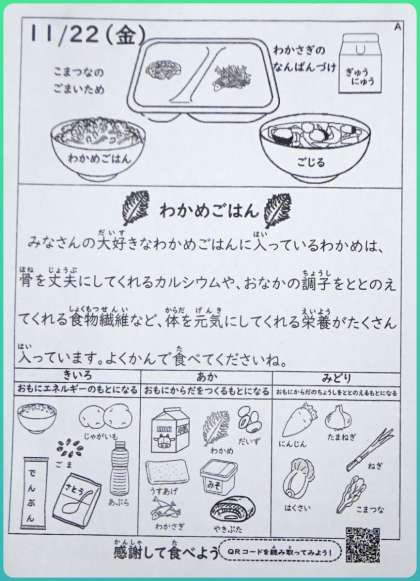 11/22(金)
A
こまつなの
ごまいため
わかさぎの
なんばんづけ
ぎゅう
にゅう
わかめごはん
ごじる
わかめごはん
みなさんの大好きなわかめごはんに入っているわかめは、
骨を丈夫にしてくれるカルシウムや、おなかの調子をととのえ
てくれる食物繊維など、体を元気にしてくれる栄養がたくさん
入っています。よくかんで食べてくださいね。
きいろ
おもにエネルギーのもとになる
じゃがいも
ごま
でんぷん
さとう
あぶら
あか
おもにからだをつくるもとになる
わかめ
だいず
うすあげ
みそ
わかさぎ
やきぶた
みどり
おもにからだのちょうしをととのえるもとになる
にんじん
たまねぎ
ねぎ
はくさい
こまつな
感謝して食べよう
QRコードを読み取ってみよう!